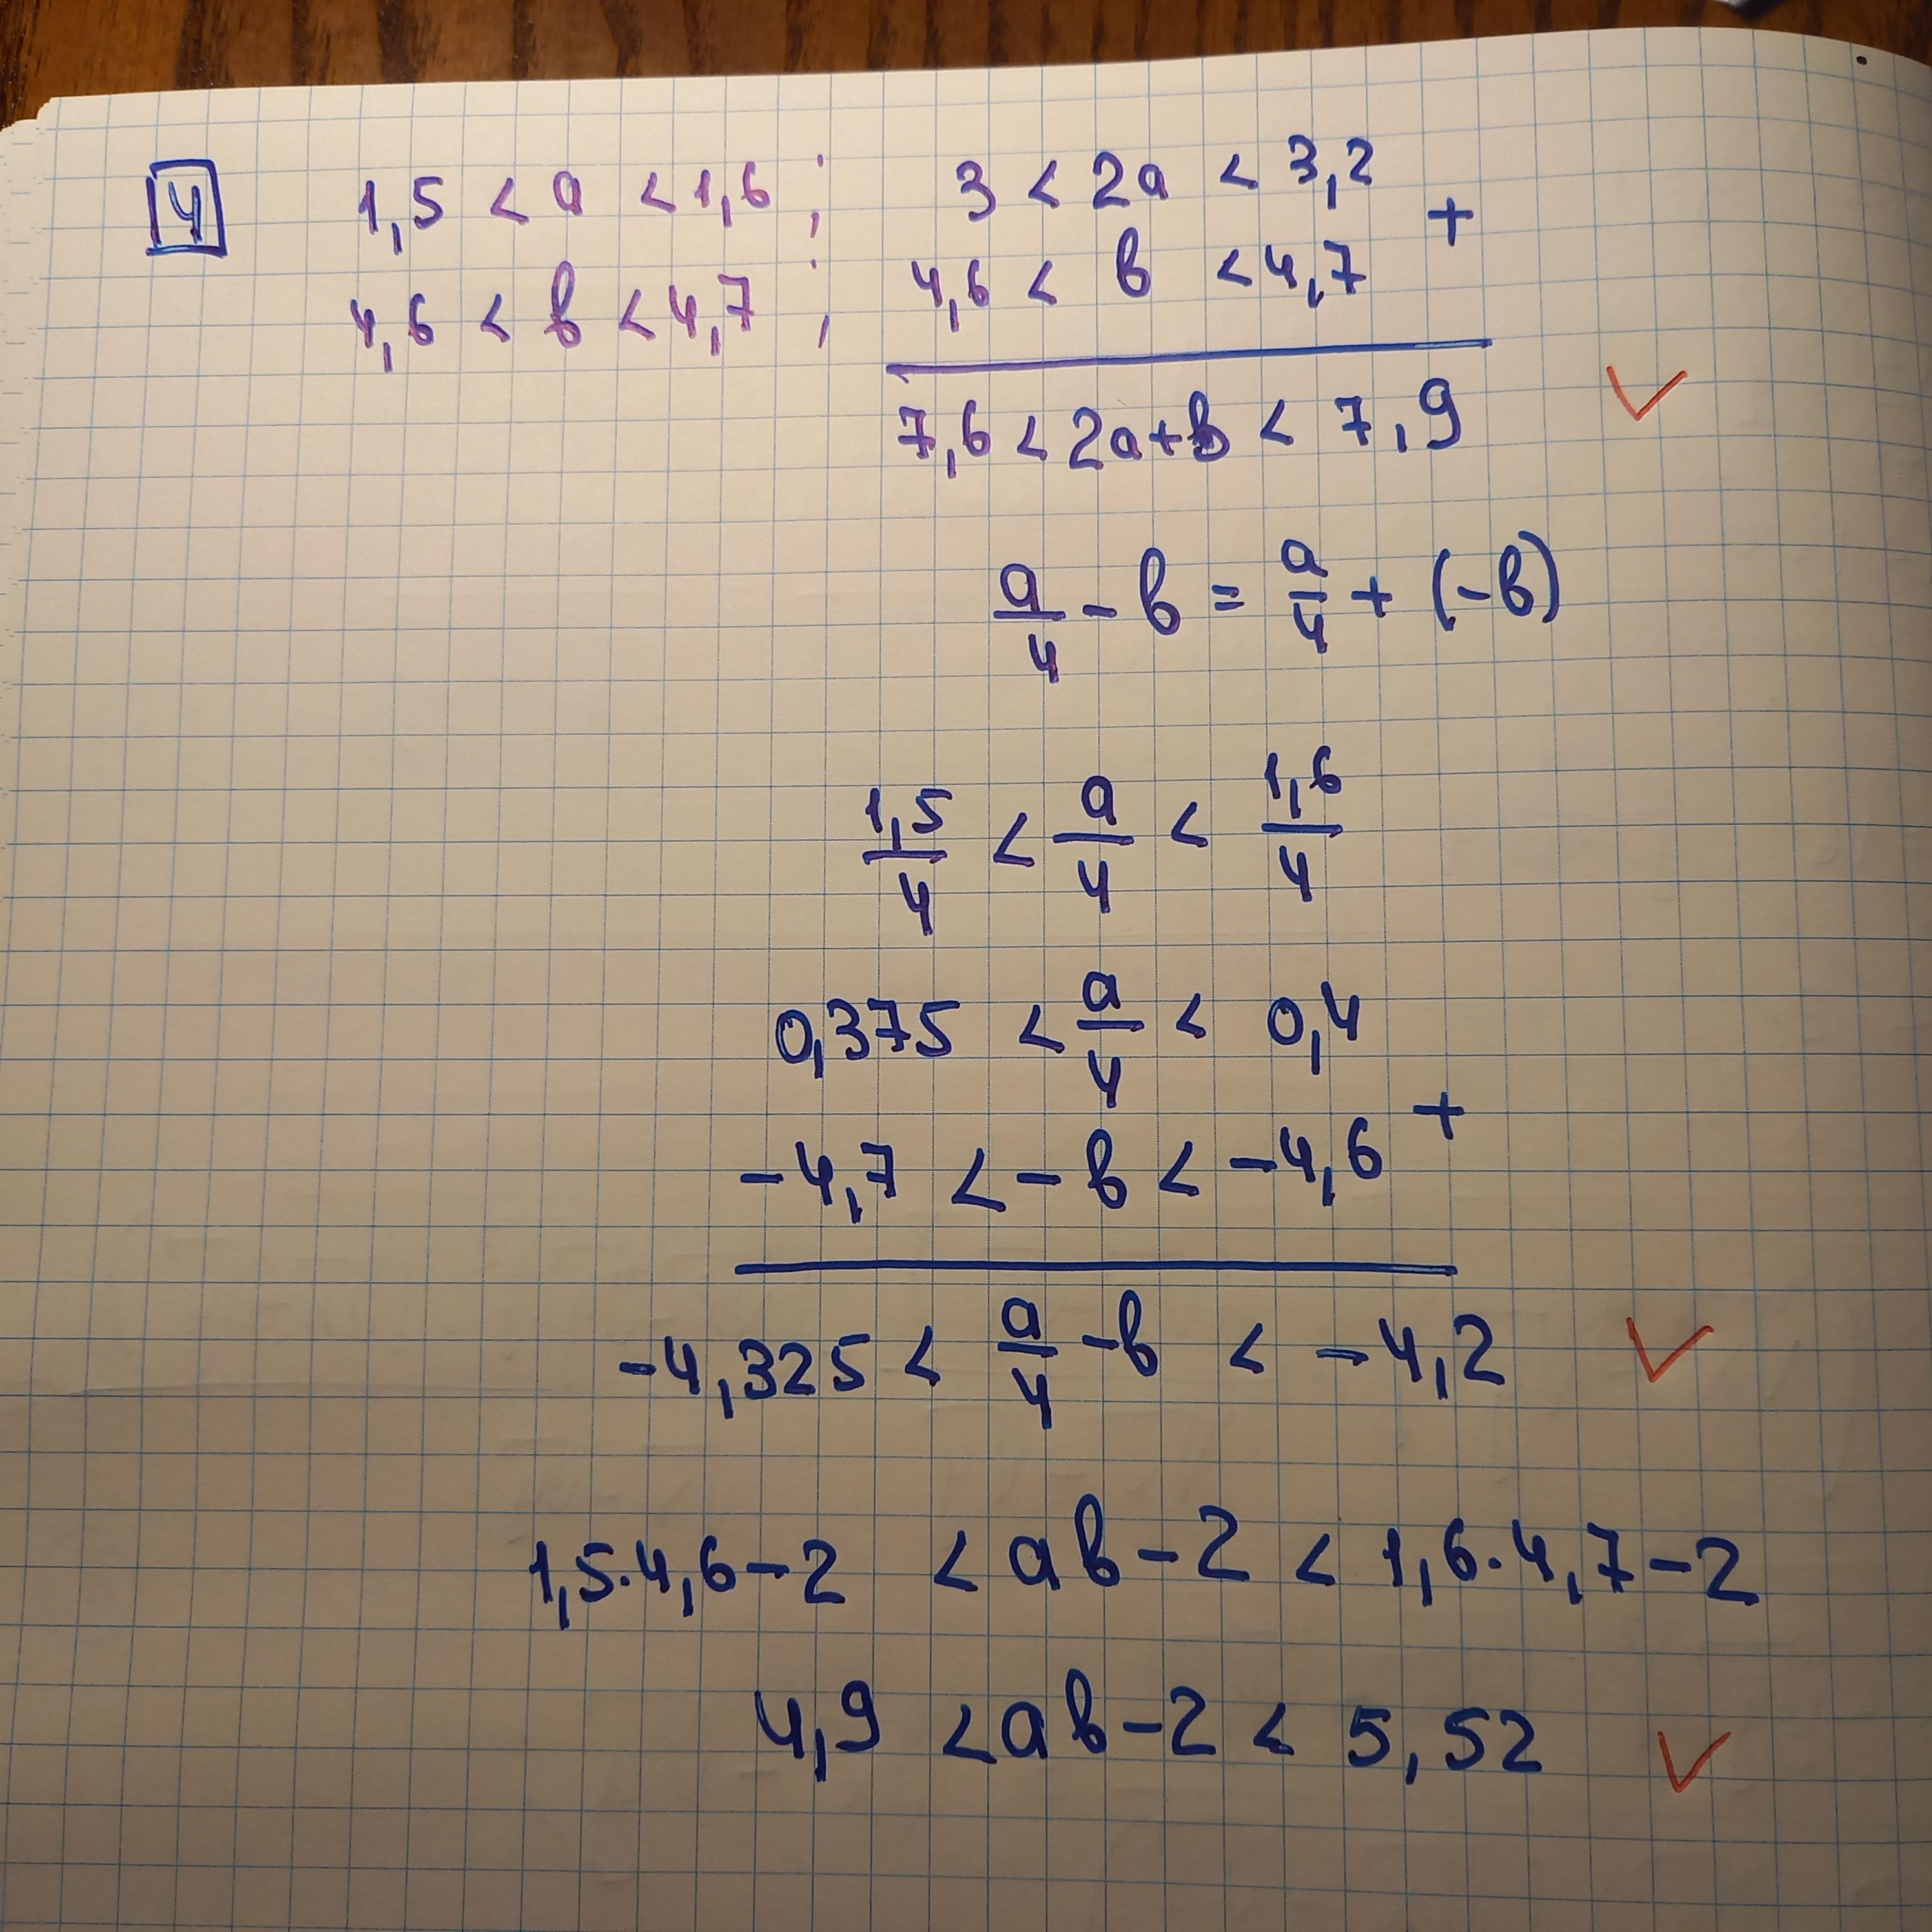 4
1,5 < a < 1,6 ; 3 < 2a < 3,2
+
4,6 < в < 4,7 ; 4,6 < в < 4,7
7,6 < 2a+в < 7,9 ✓
a/4 - в = a/4 + (-в)
1,5/4 < a/4 < 1,6/4
0,375 < a/4 < 0,4
+
-4,7 < -в < -4,6
-4,325 < a/4 - в < -4,2 ✓
1,5·4,6-2 < aв-2 < 1,6·4,7-2
4,9 < aв-2 < 5,52 ✓